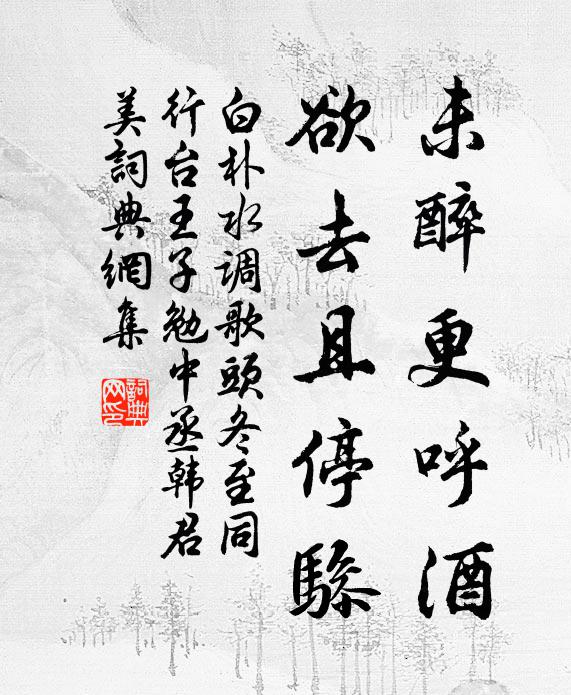 未醉更呼酒
欲去且停驂
白朴水调歌頭冬至同
行台王子勉中丞韩君
美詞典網集
詞典
网印